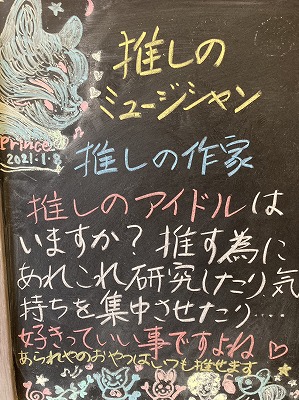 推しの
ミュージシャン
Prince
2021.1.8
推しの作家
推しのアイドルは
いますか？推す為に
あれこれ研究したり気
持ちを集中させたり....
好きっていい事ですよね♡
あられやのおやつはいつも推せます